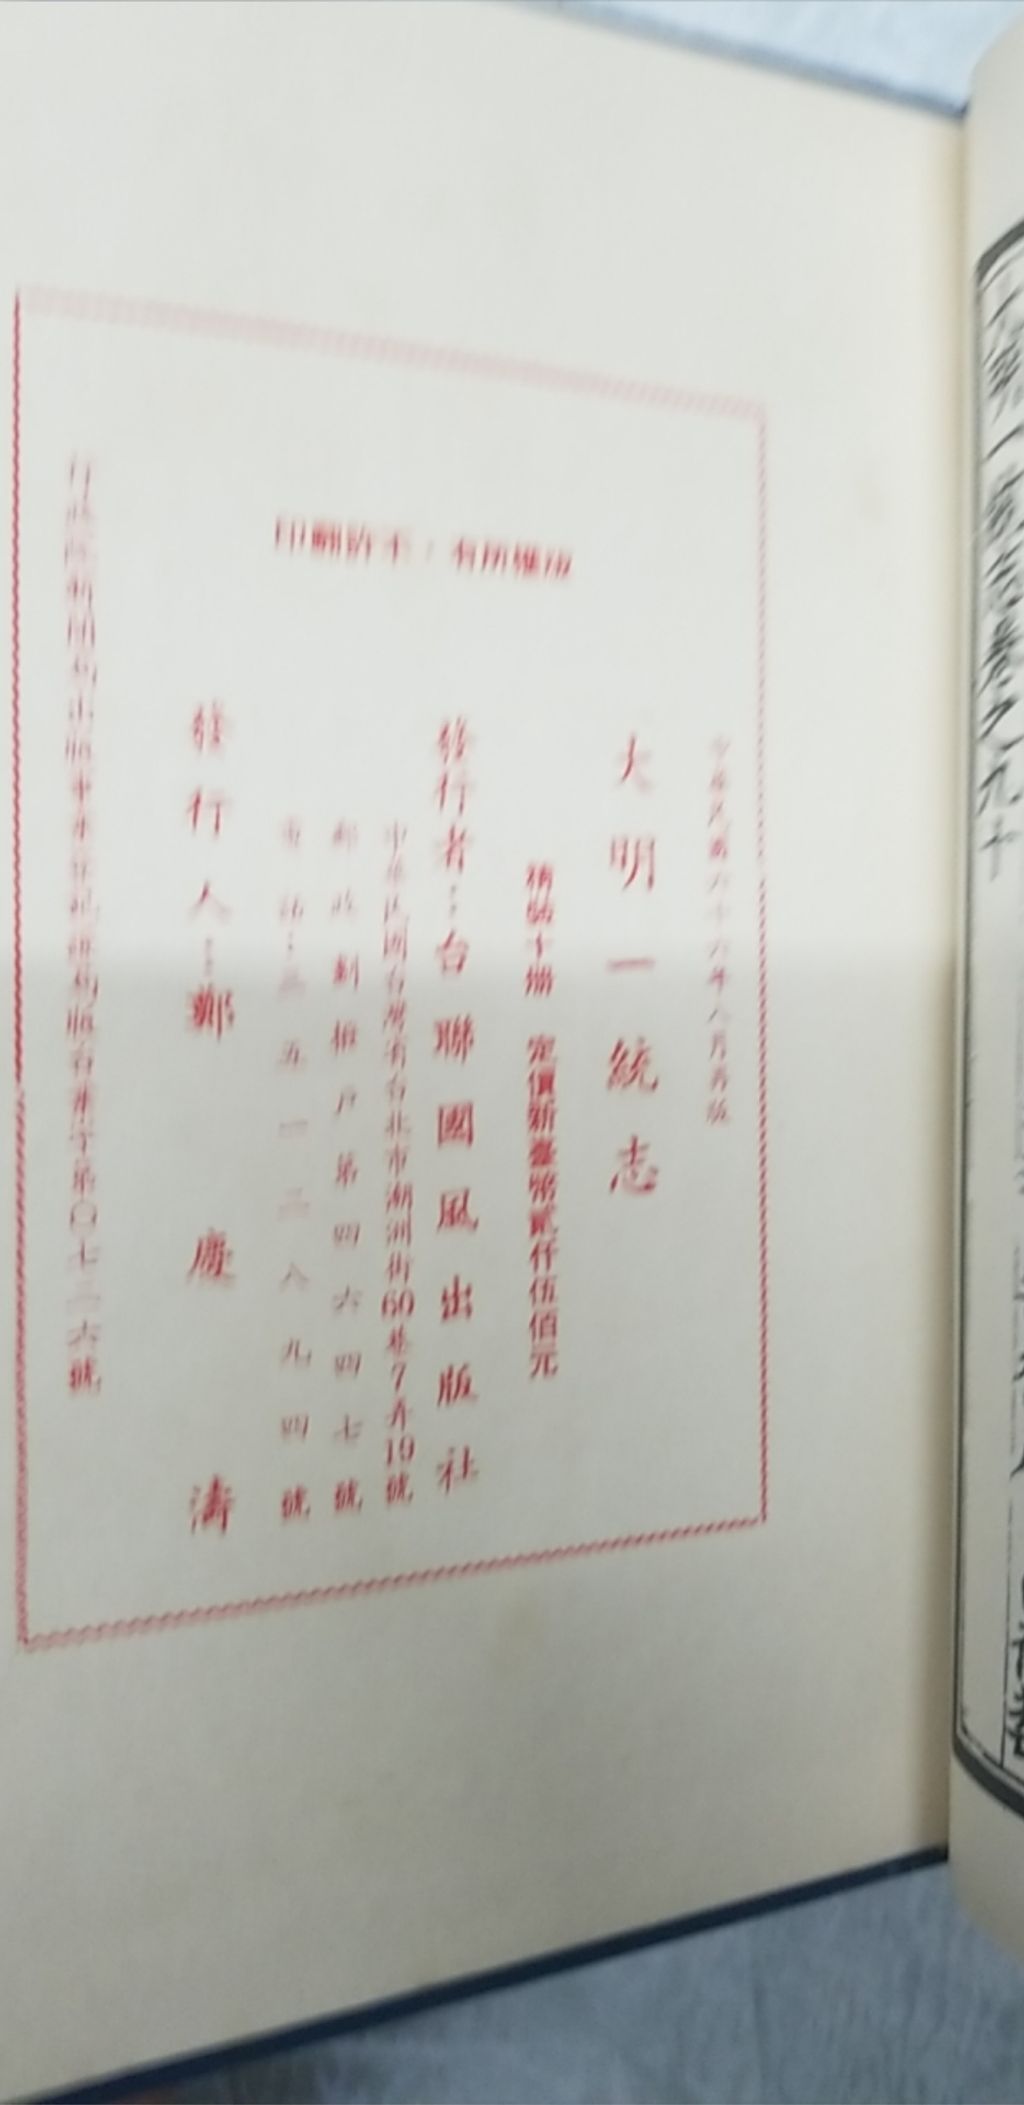 版權所有・不許翻印
中華民國六十六年八月再版
大明一統志
精裝十册 定價新臺幣貳仟伍佰元
發行者：台聯國風出版社
中華民國台灣省台北市潮洲街60巷7弄19號
郵政劃撥戶第四六四七號
電話：三五一二八九四號
發行人：鄭慶濤
行政院新聞局出版事業登記證局版台業字第〇七三六號
大明一統志卷之九十